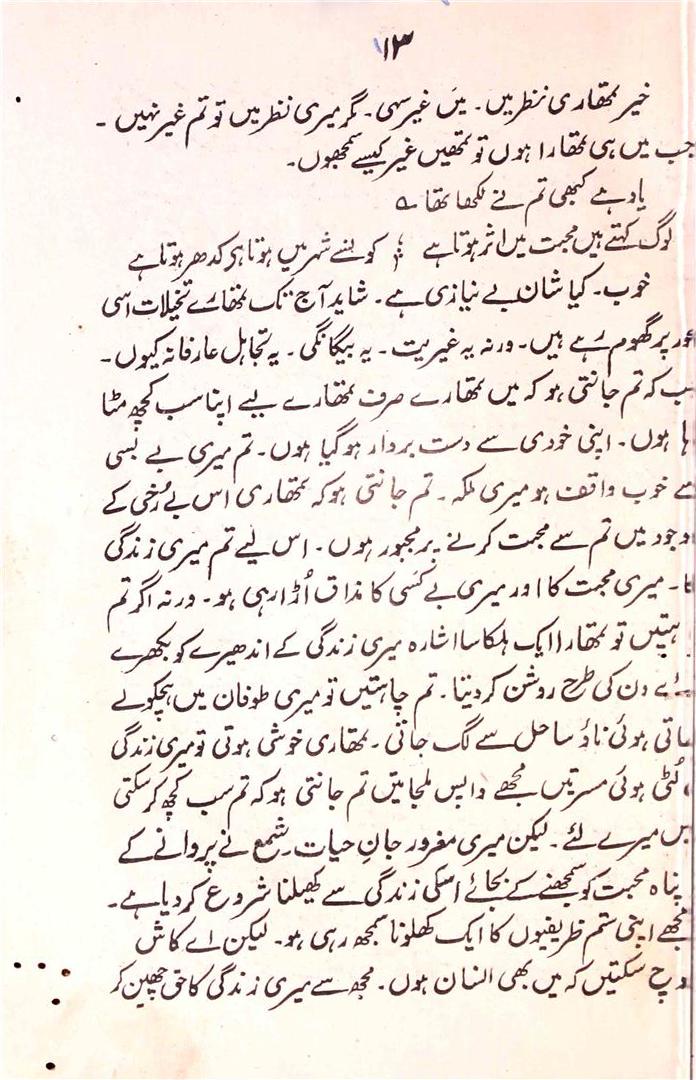 ۱۳
خیر تمھاری نظر میں۔ میں غیر سہی۔ گر میری نظر میں تو تم غیر نہیں۔
جب میں ہی تمھارا ہوں تو تمھیں غیر کیسے سمجھوں۔
یاد ہے کبھی تم نے لکھا تھا ؎
لوگ کہتے ہیں محبت میں اثر ہوتا ہے کونسے شہر میں ہوتا ہے کدھر ہوتا ہے
خوب۔ کیا شان بے نیازی ہے۔ شاید آج تک تمھارے تخیلات اسی
ور پر گھوم رہے ہیں۔ ورنہ یہ غیریت۔ یہ بیگانگی۔ یہ تجاہل عارفانہ کیوں۔
ب کہ تم جانتی ہو کہ میں تمھارے صرف تمھارے لیے اپنا سب کچھ مٹا
ہا ہوں۔ اپنی خودی سے دست بردار ہو گیا ہوں۔ تم میری بے بسی
سے خوب واقف ہو میری ملکہ۔ تم جانتی ہو کہ تمھاری اس بے رُخی کے
وجود میں تم سے محبت کرنے پر مجبور ہوں۔ اس لیے تم میری زندگی
کا۔ میری محبت کا اور میری بے کسی کا مذاق اُڑا رہی ہو۔ ورنہ اگر تم
ہتیں تو تمھارا ایک ہلکا سا اشارہ میری زندگی کے اندھیرے کو نکھرے
ئے دن کی طرح روشن کر دیتا۔ تم چاہتیں تو میری طوفان میں ہچکولے
ھاتی ہوئی ناؤ ساحل سے لگ جاتی۔ تمھاری خوشی ہوتی تو میری زندگی
لُٹی ہوئی مسرتیں مجھے واپس ملجاتیں تم جانتی ہو کہ تم سب کچھ کر سکتی
میرے لئے۔ لیکن میری مغرور جانِ حیات۔ شمع نے پروانے کے
پناہ محبت کو سمجھنے کے بجائے اسکی زندگی سے کھیلنا شروع کر دیا ہے۔
مجھے اپنی ستم ظریفیوں کا ایک کھلونا سمجھ رہی ہو۔ لیکن اے کاش
وچ سکتیں کہ میں بھی انسان ہوں۔ مجھ سے میری زندگی کا حق چھین کر